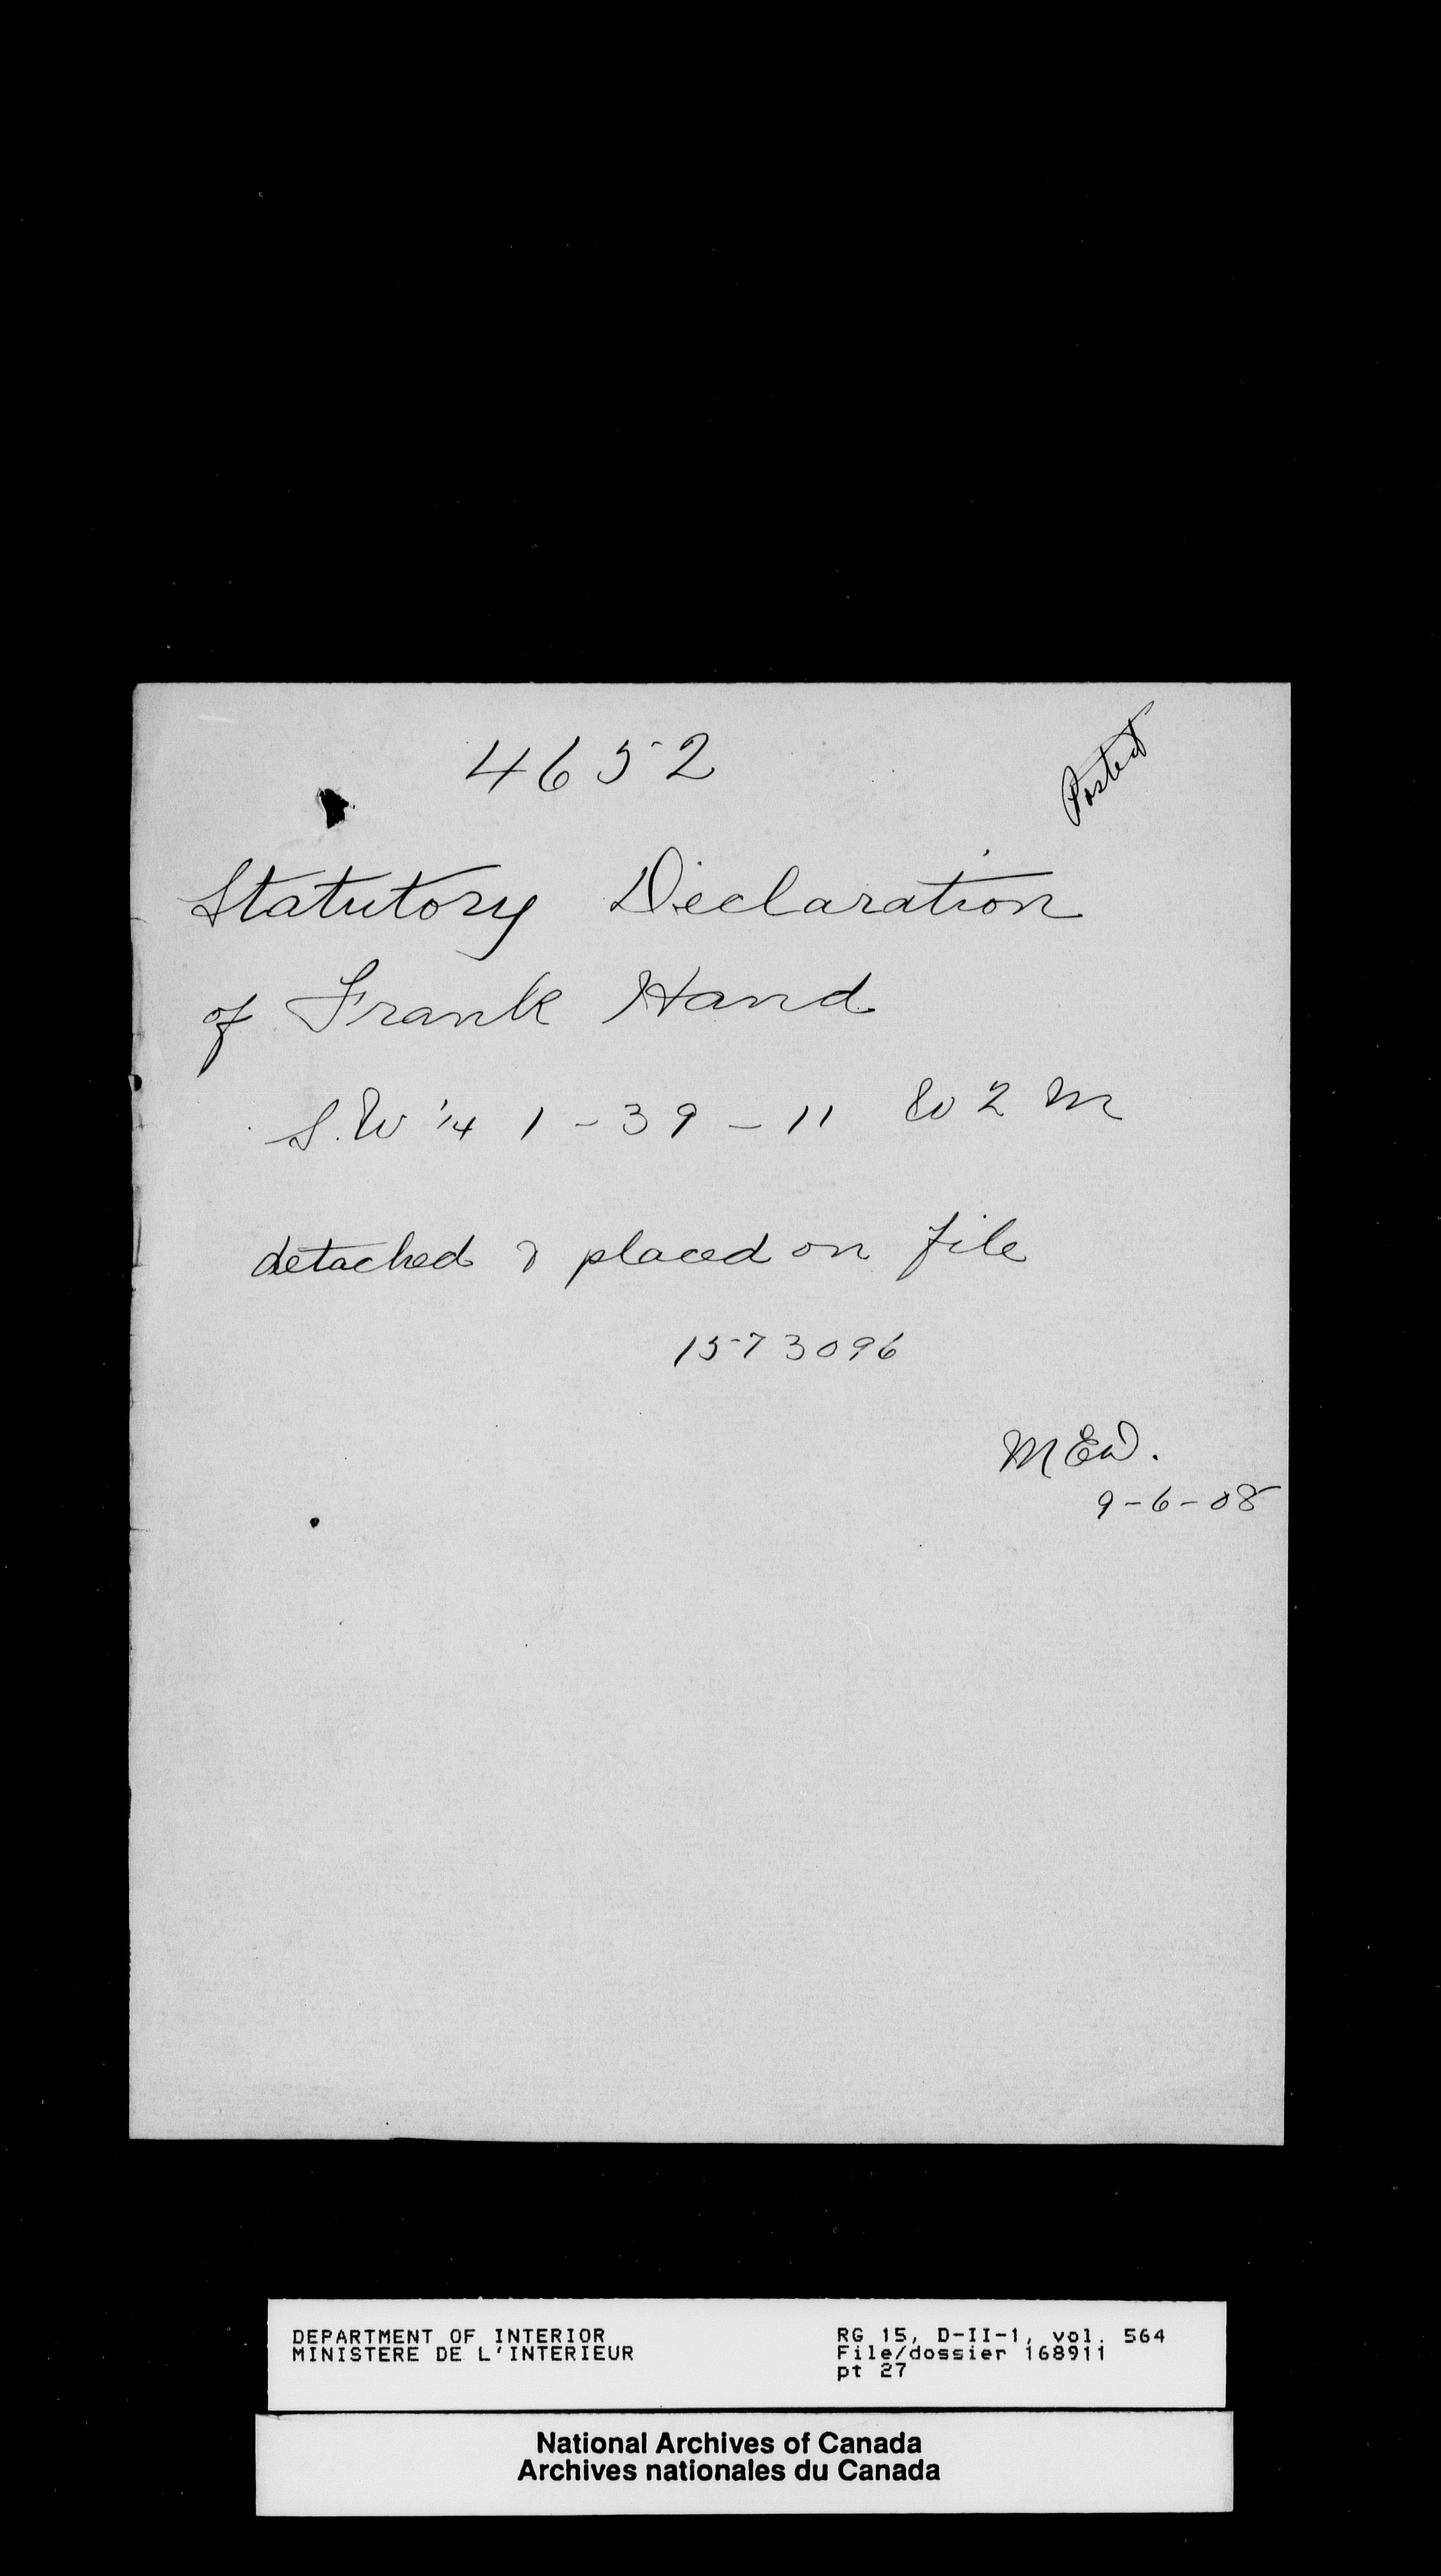 4652
Posted
Statutory Declaration
of Frank Hand
S.W 1/4 1-39-11 W2M
detached & placed on file
1573096
MEW.
9-6-08
DEPARTMENT OF INTERIOR
MINISTERE DE L'INTERIEUR
RG 15, D-II-1, vol. 564
File/dossier 168911
pt 27
National Archives of Canada
Archives nationales du Canada